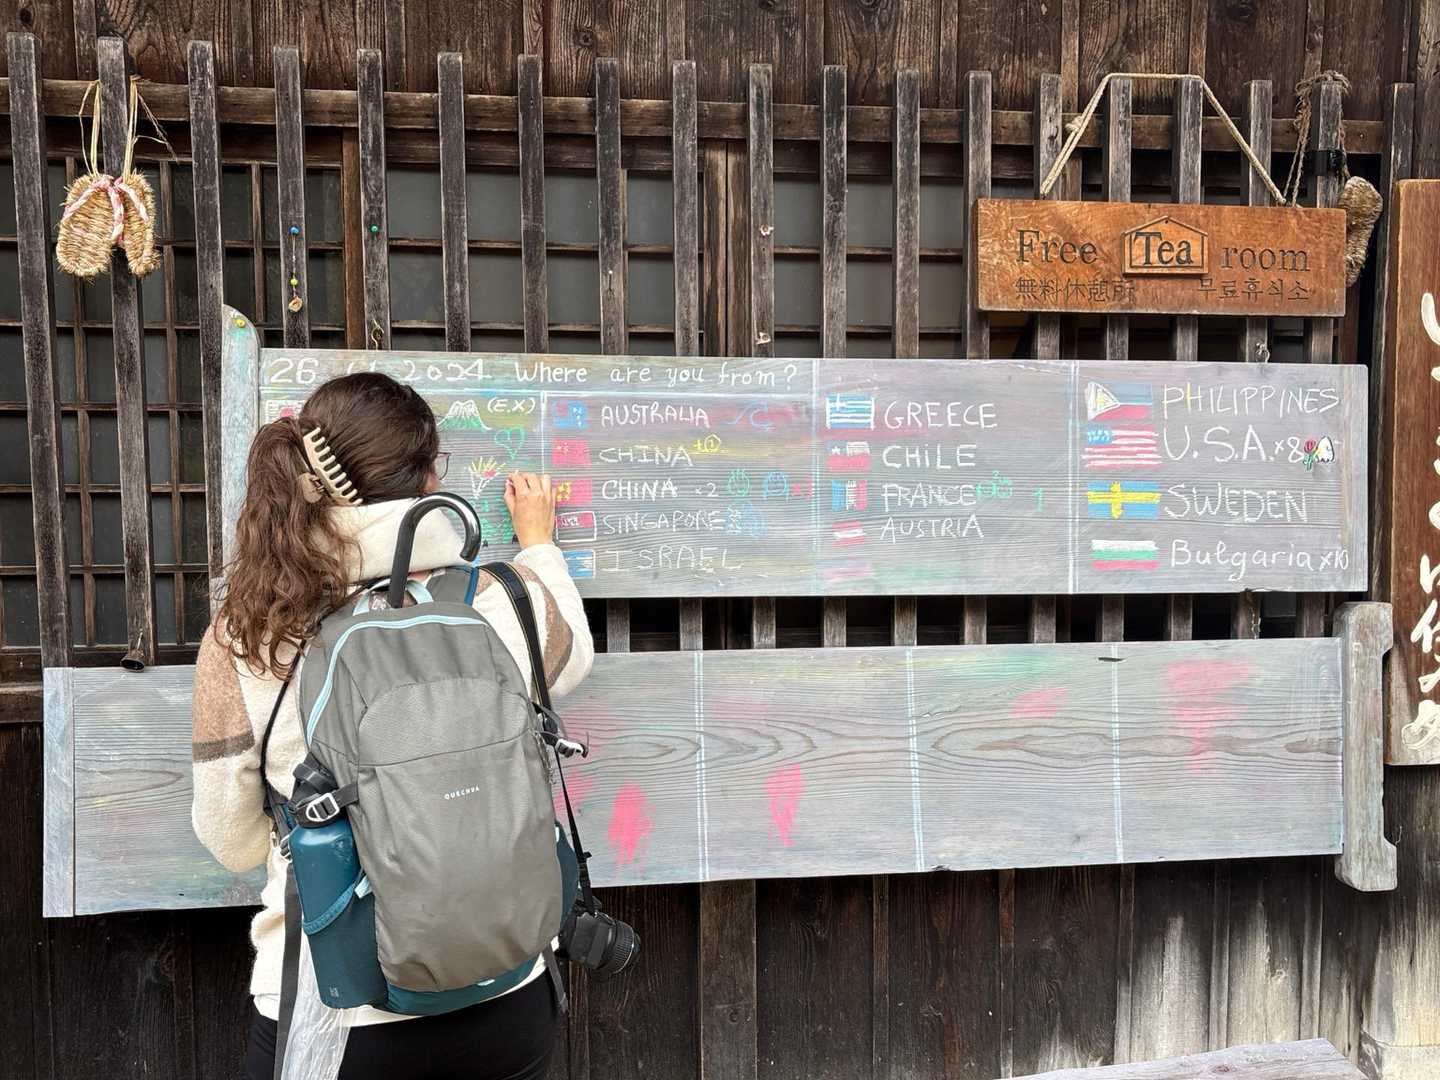 Free Tea room
無料休憩所 무료휴식소
26 2024 Where are you from?
(E.X)
AUSTRALIA
CHINA +1
CHINA x2
SINGAPORE
ISRAEL
GREECE
CHILE
FRANCE
AUSTRIA
PHILIPPINES
U.S.A. x8
SWEDEN
Bulgaria x10
QUECHUA